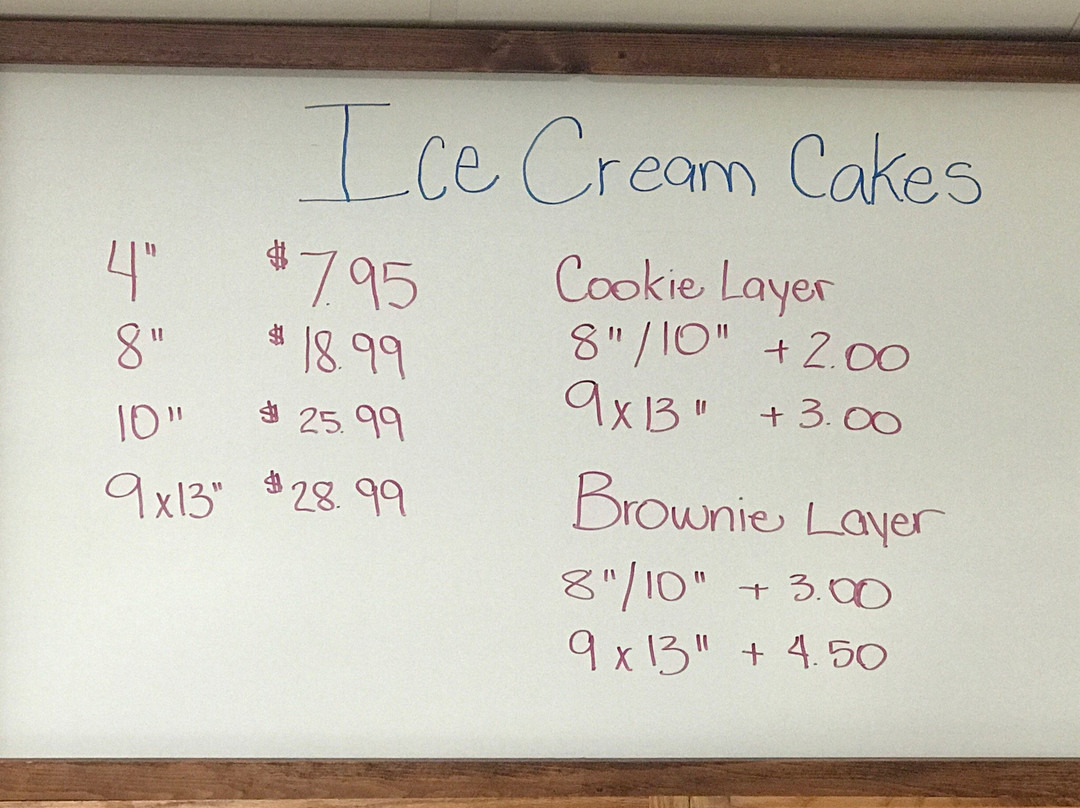 Ice Cream Cakes
4" $7.95
8" $18.99
10" $25.99
9x13" $28.99
Cookie Layer
8"/10" +2.00
9x13" +3.00
Brownie Layer
8"/10" + 3.00
9x13" + 4.50